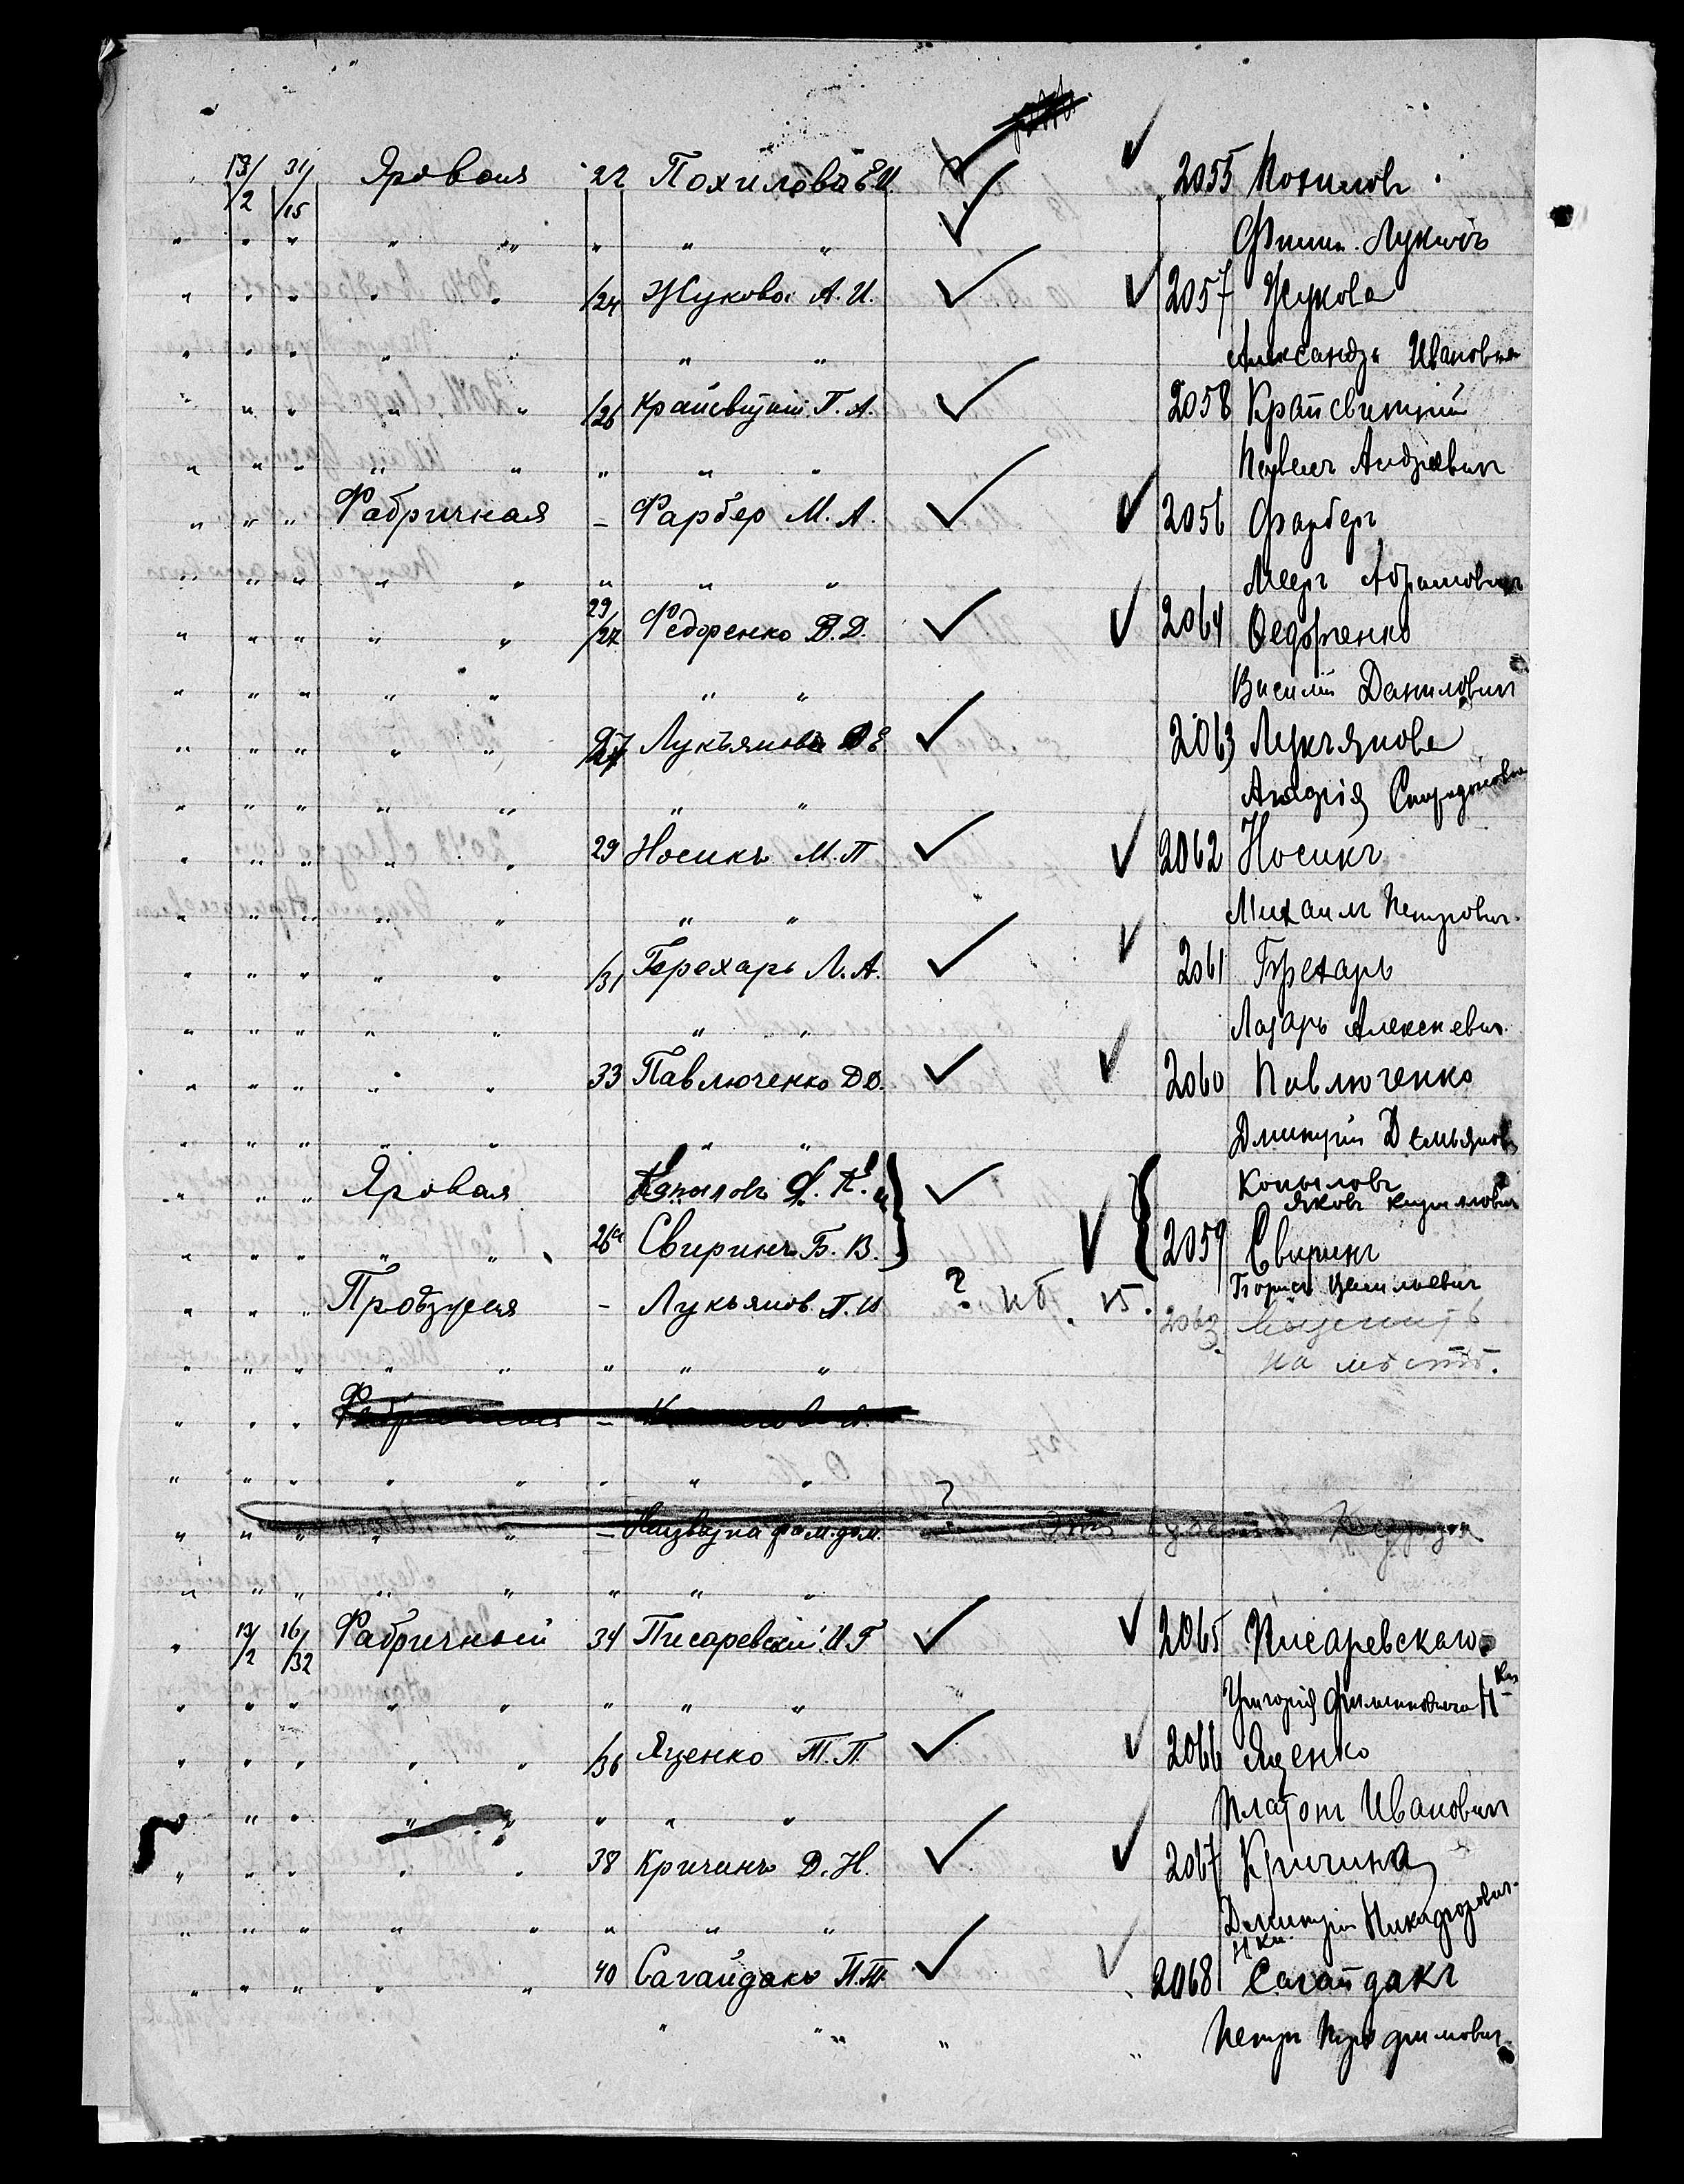 13/2 31/15 Яровая 22 Похилова Е И. 2055 Похиловъ
" " " " " " " " Филип. Лукичъ
" " " " " /24 Жукова А. И. 2057 Жукова
" " " " " " " Александра Ивановна
" " " " " /26 Крайсвитній П. А. 2058 Крайсвитний
" " " " " " " " Павелъ Андреевич
" " " Фабричная – Фарбер М. А. 2056 Фарберъ
" " " " " " " " Мееръ Абрамович
" " " " " 29/27 Федоренко В. Д. 2064 Федоренко
" " " " " " " Василій Данилович
" " " " " 27 Лукьянова Е 2063 Лукьянова
" " " " " " " Спиридоновна
" " " " " 29 Носикъ М. П 2062 Носикъ
" " " " " " " Михаилъ Петрович.
" " " " " /31 Терехарь Л. А. 2061 Терехарь
" " " " " " " Лазарь Алексеевич.
" " " " " 33 Павлюченко Д Д. 2060 Павлюченко
" " " " " " " Дмитрій Демьянов
" " " Яровая Копыловъ Я. К. и Копыловъ
Яковъ Кириллович
" " " " " 26а Свиринъ Б. В. 2059 Свиринъ
Борисъ
" " " – Лукьянов П. И ? кв. 15. 2063.
" " " " " " " " на мѣстѣ.
" " " –
" " " " " " " "
" " " " " – фам. дом. ?
" " " " " " " "
" 13/2 16/32 Фабричный 34 Писаревскій И Г 2065 Писаревскаго
" " " " " " " " Григорія Филимоновича Н ки
" " " " " /36 Яценко П. 2066 Яценко
" " " " " " " Платонъ Иванович
" " " " " 38 Кричинъ Д. Н. 2067 Кричина
" " " " " " " " Дмитрія Никифорович.
Н ки.
" " " " " 40 Сагайдакъ П. Т. 2068 Сагайдакъ
" " " " " Петръ